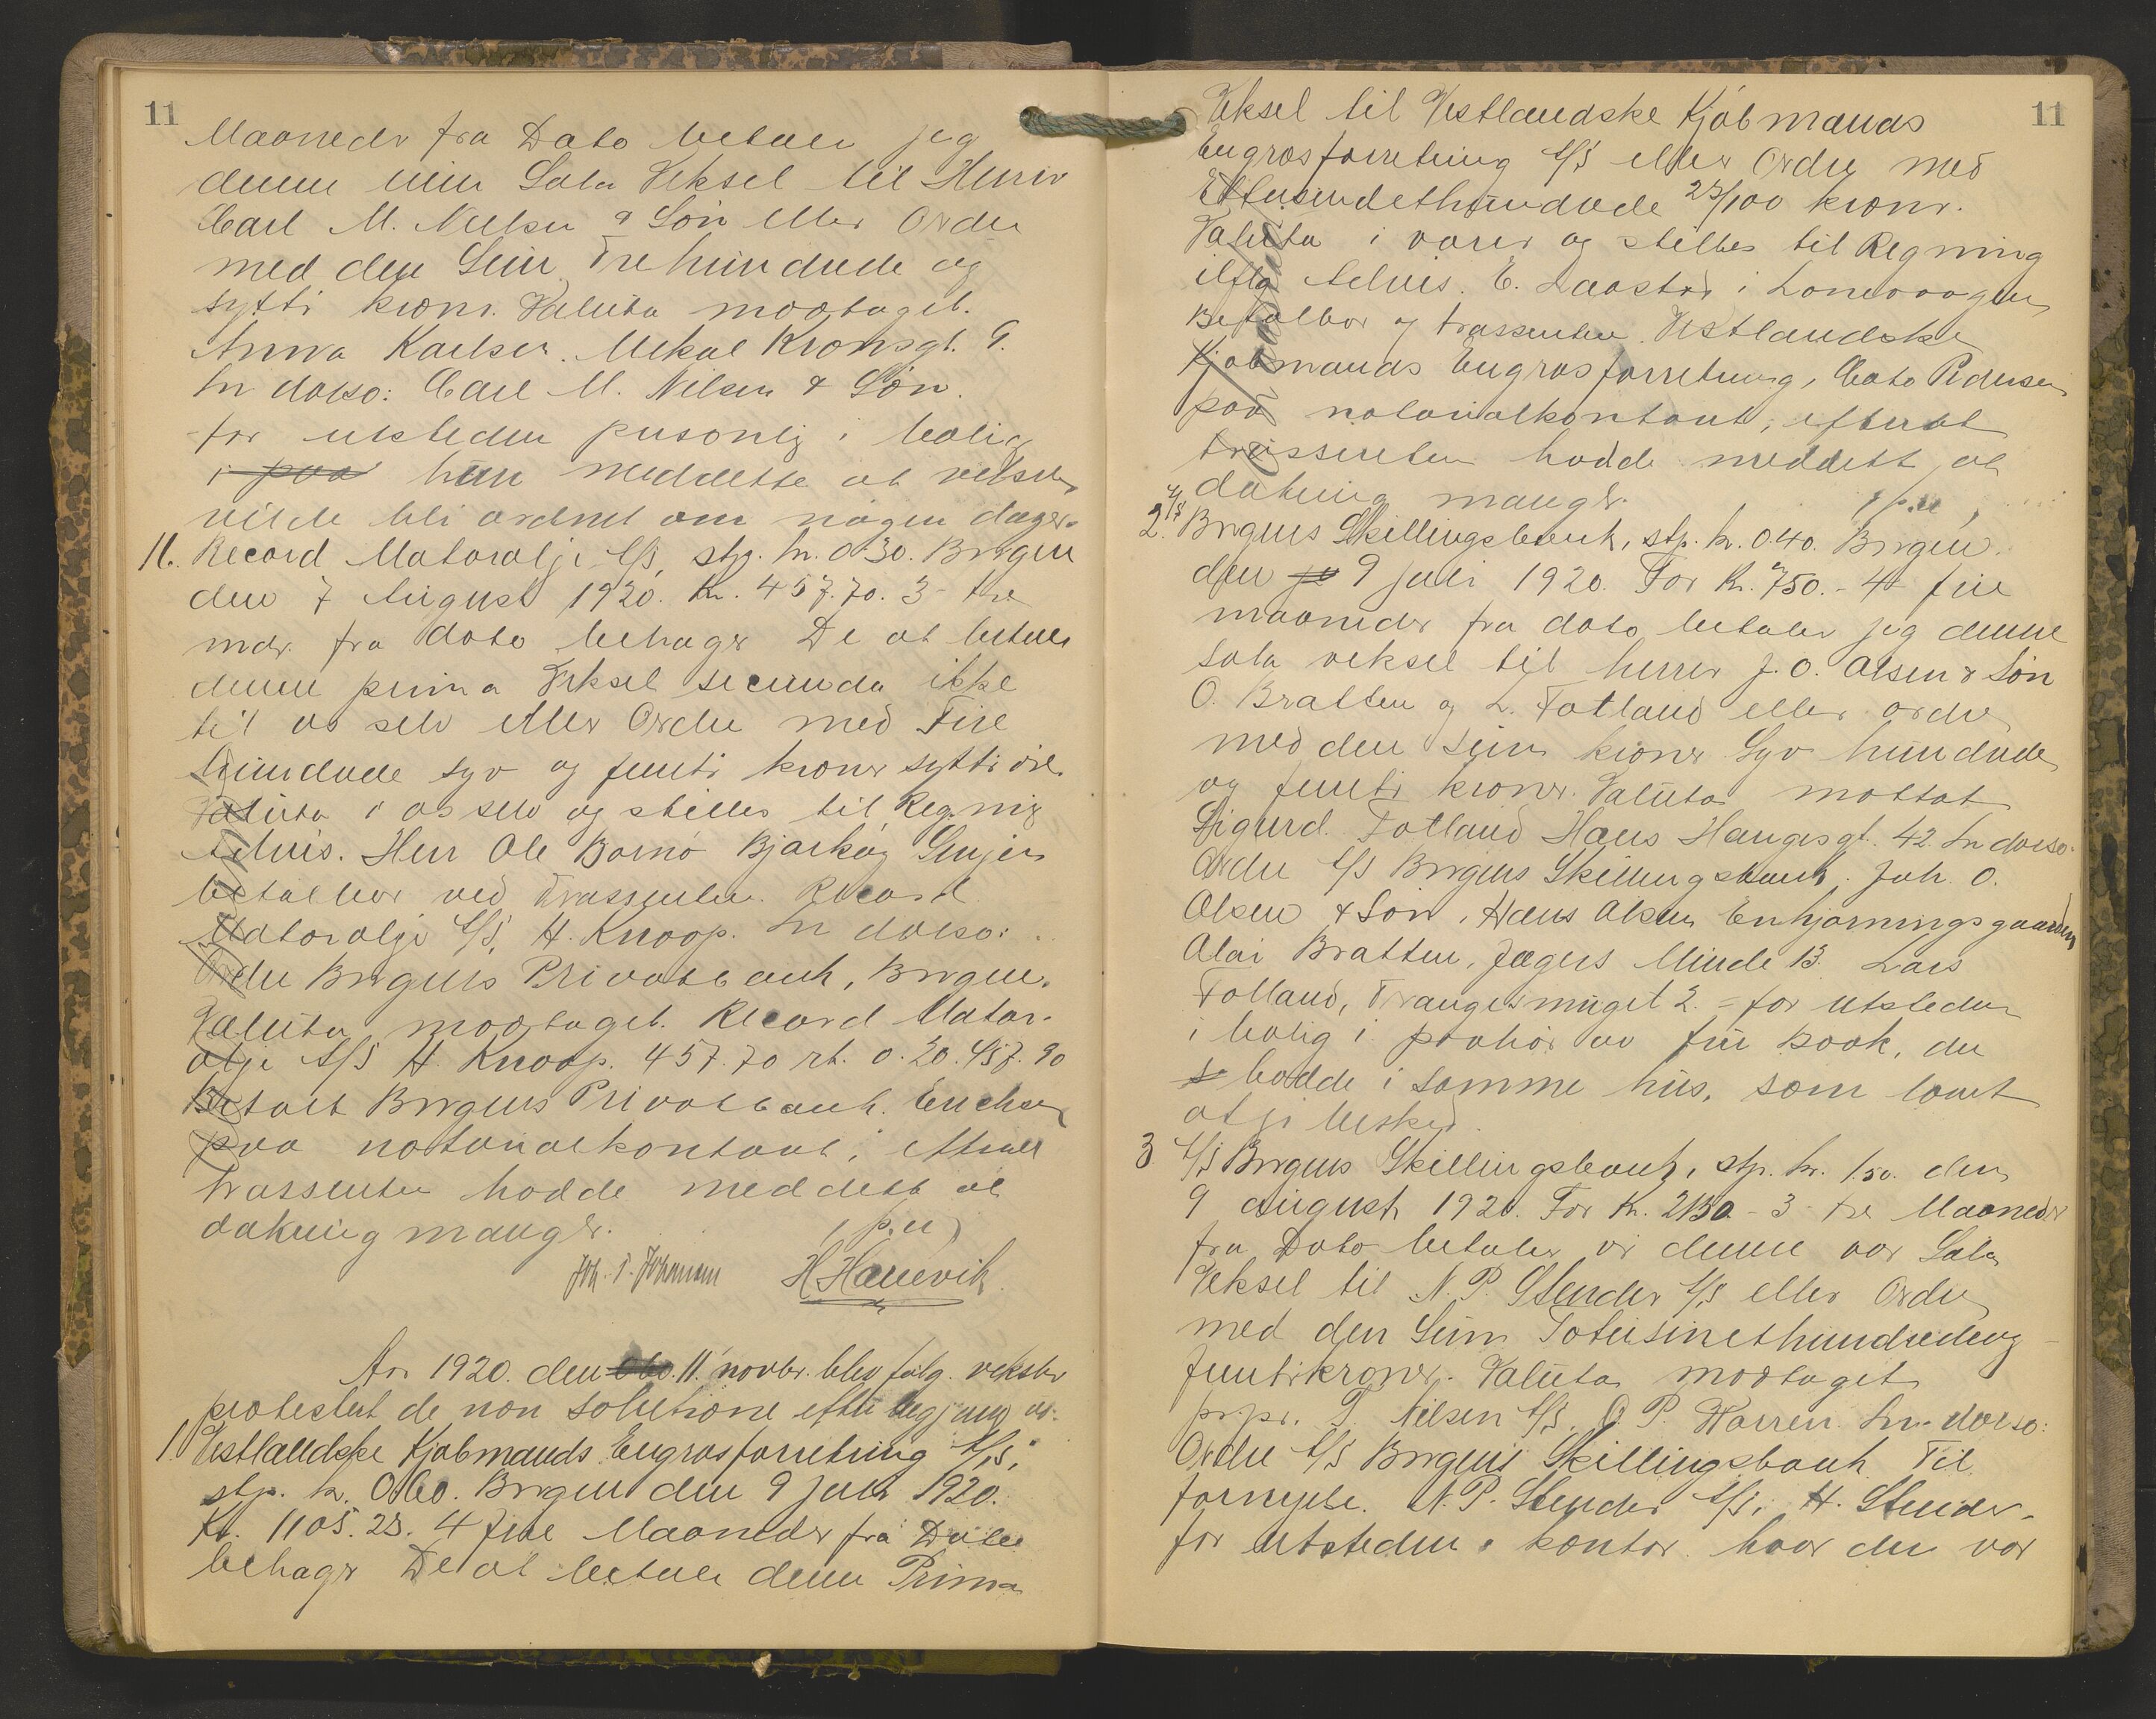 11
Maaneder fra Dato betaler jeg
denne min Sola Veksel til Herrer
Carl M. Nielsen & Søn eller Ordre
med den Sum Trehundrede og
sytti kroner. Valuta modtaget.
Anna Karlsen. Mikal Kronsgt. 9.
In dorso: Carl M. Nilsen & Søn.
for utstederen personlig i bolig
i paa hun meddelte at vekselen
vilde bli ordnet om nogen dager.
11. Record Motorolje A/S, stp. kr. 0.30. Bergen
den 7 August 1920. Kr. 457.70. 3 tre
mdr. fra dato behager De at betale
denne prima Veksel secunda ikke
til os selv eller Ordre med Fire
hundrede syv og femti kroner sytti øre
Valuta i os selv og stilles til Regning
Advis. Herr Ole Bornø Bjarkøy Senjen
betalbar ved Trassenten. Record
Motorolje A/S, H. Knoop. In dorso:
Ordre Bergens Privatbank, Bergen.
Valuta modtaget. Record Motor-
olje A/S H. Knoop. 457.70 rt. 0.20. 457.90
Betalt Bergens Privatbank. Erichsen
paa notarialkontoret; efterat
trassenten hadde meddelt at
dækning mangler.
p.u.
Joh. P. Johannsen H. Hauevik
Aar 1920. den 11. novbr. blev følg. veksler
protestert de non solutione efter begjæring av:
1. Vestlandske Kjøbmands Engrosforretning A/S,
stp. kr. 0.60. Bergen den 9 Juli 1920.
Kr. 1105.23. 4 fire Maaneder fra Dato
behager De at betale denne Prima
11
Veksel til Vestlandske Kjøbmands
Engrosforretning A/S eller Ordre med
Ettusindethundrede 23/100 kroner.
Valuta i varer og stilles til Regning
ifta Advis. E. Laastad i Lonevaagen
Betalbar og trassenten. Vestlandske
Kjøbmands Engrosforretning, Cato Pedersen
paa notarialkontoret, efterat
trassenten hadde meddelt at
dækning mangler. p.u.
2. A/S Bergens Skillingsbank, stp. kr. 0.40. Bergen
den 9 juli 1920. For Kr. 750.- 4 fire
maaneder fra dato betaler jeg denne
sola veksel til herrer J. O. Olsen & Søn
O. Bratten og L. Totland eller ordre
med den sum kroner Syv hundrede
og femti kroner. Valuta mottat
Sigurd Totland Hans Haugesgt. 42. In dorso.
Ordre A/S Bergens Skillingsbank. Joh. O.
Olsen & Søn, Hans Olsen Enhjørningsgaarden
Olai Bratten, Jægers Minde 13. Lars
Totland, Trangesmuget 2. = for utstederen
i bolig i paahør av fru Kook, der
bodde i samme hus, som lovet
at gi besked.
3 A/S Bergens Skillingsbank, stp. kr. 1.50. den
9 august 1920. For Kr. 2150.- 3 tre Maaneder
fra Dato betaler vi denne vor Sola
Veksel til N. P. Stender A/S eller Ordre
med den Sum Totusinethundredeog
femtikroner. Valuta modtaget
pr.pr. T. Nilsen A/S, O. P. Harren. In dorso:
Ordre A/S Bergens Skillingsbank Til
fornyelse. N. P. Stender A/S, H. Stender.
for utstederens kontor hvor der var